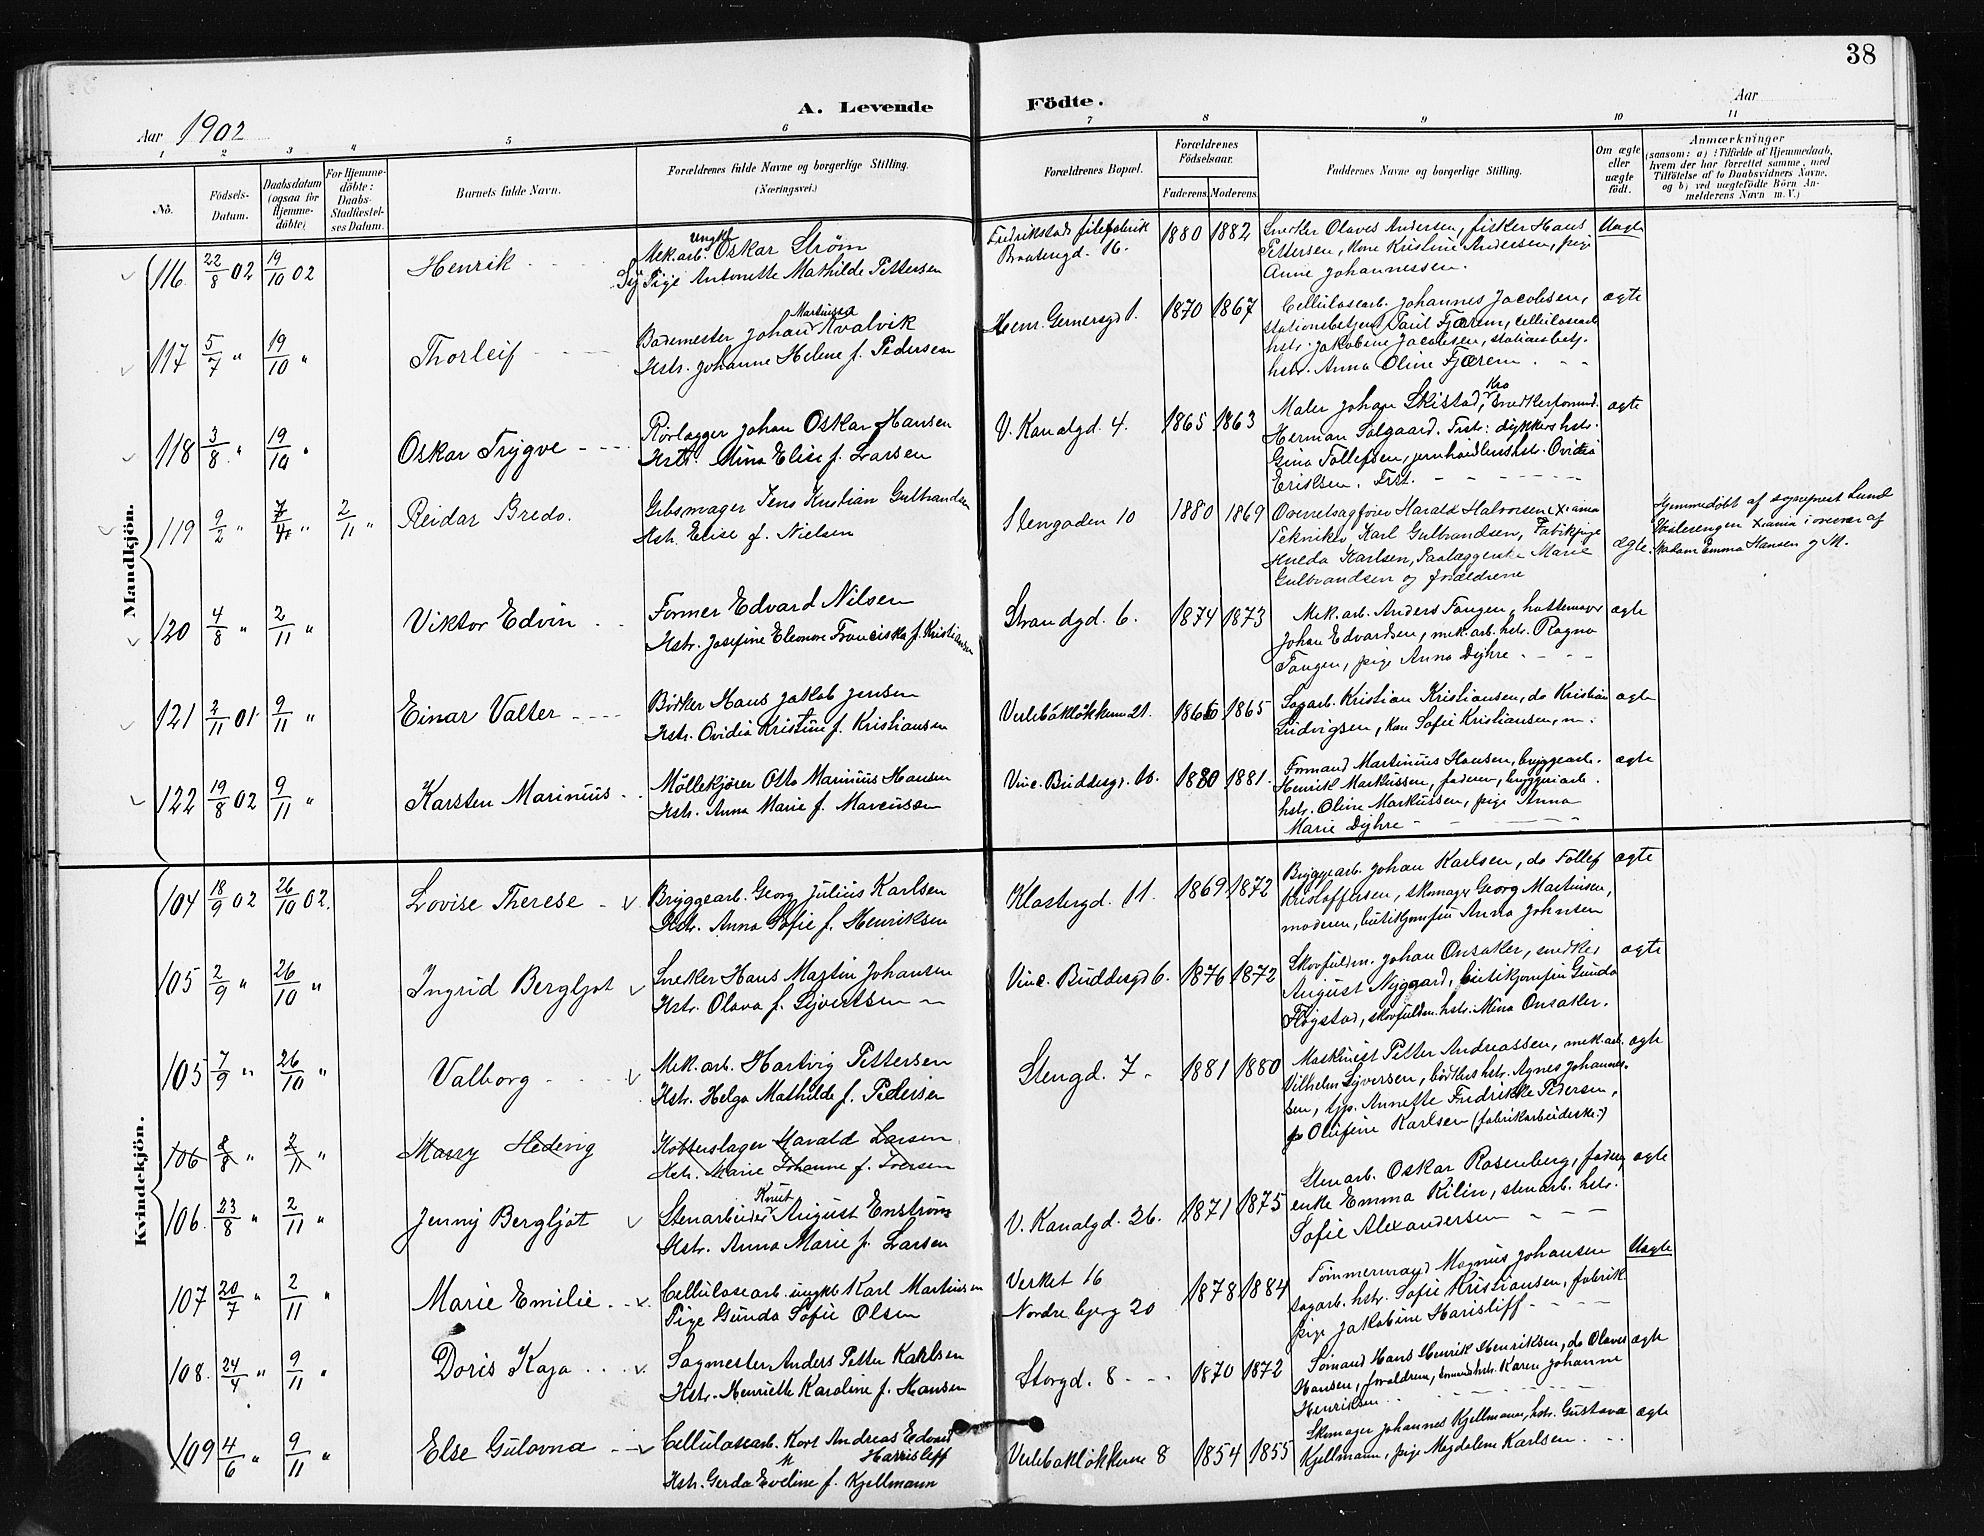 38
A. Levende Födte.
Aar 1902
Aar
1 2 3 4 5 6 7 8 9 10 11
No.
Födsels-Datum.
Daabsdatum (ogsaa for Hjemme-döbte)
For Hjemme-döbte: Daabs-Stadfæstel-ses Datum.
Barnets fulde Navn.
Forældrenes fulde Navne og borgerlige Stilling. (Næringsvei.)
Forældrenes Bopæl.
Forældrenes Födselsaar.
Faderens. Moderens.
Faddernes Navne og borgerlige Stilling.
Om ægte eller uægte födt.
Anmærkninger
(saasom: a) i Tilfælde af Hjemmedaab,
hvem der har forrettet samme, med
Tilföielse af to Daabsvidners Navne,
og b) ved uægtefödte Börn An-
melderens Navn m. V.)
Mandkjön.
116 22/8 02 19/10 02 Henrik
Mek.arb. ungk Oskar Strøm
Pige Antonette Mathilde Pettersen
Fredrikstads filefabrik
Braatengd. 16.
1880 1882
Snecker Olaves Andersen, fisker Hans
Pettersen, kone Kristine Andersen, pige
Anne Johannessen.
Uægte
117 5/7 " 19/10 " Thorleif
Bademester Johan Martinsen Kvalvik
Hstr. Johanne Helene f. Pedersen
Henr. Gernersgd 1.
1870 1867
Cellulosearb. Johannes Jacobsen,
stationsbetjent Paul Fjærem, cellulosearb
hstr. Jakobine Jacobsen, stationsbetj.
hstr. Anna Oline Fjærem
ægte
118 3/8 " 19/10 " Oskar Trygve
Rörlægger Johan Oskar Hansen
Hstr. Mina Elise f. Larsen
V. Kanalgd. 4.
1865 1863
Maler Johan Skistad, Kra Snedkerformd.
Herman Salgaard. Frst: dykkers hstr.
Gina Tollefsen, jernhandlers hstr. Ovidia
Eriksen. Frst.
ægte
119 9/2 " 7/4 " 2/11 " Reidar Bredo.
Gibsmager Jens Kristian Gulbrandsen
Hstr. Elise f. Nielsen
Stengaden 10
1880 1869
Overretssagfører Harald Halvorsen Xiania
Tekniker Karl Gulbrandsen, Fabrikpige
Hulda Karlsen, Paalæggerske Marie
Gulbrandsen og forældrene
ægte.
Hjemmedöbt af sognepræst Lund
Vaalerengen Xiania i nærvær af
Madam Emma Hansen og M.
120 4/8 " 2/11 " Viktor Edvin
Former Edvard Nilsen
Hstr. Josefine Eleonore Franciska f. Kristiansen
Strandgd. 6.
1874 1873
Mek.arb. Anders Tangen, hattemager
Johan Edvardsen, mek.arb. hstr. Ragna
Tangen, pige Anna Dyhre
ægte
121 2/11 01 9/11 " Einar Valter
Bödker Hans Jakob Jensen
Hstr. Ovidia Kristine f. Kristiansen
Veelebäklökkum 21.
1866 1865
Sagarb. Kristian Kristiansen, do Kristian
Ludvigsen, kone Sofie Kristiansen, m.
ægte
122 19/8 02 9/11 " Karsten Marinius
Möllekjører Otto Marinius Hansen
Hstr. Anna Marie f. Marcussen
Vinc. Buddesgd. 10.
1880 1881.
Formand Martinius Hansen, bryggearb.
Henrik Markussen, faderen, bryggeriarb.
hstr. Oline Markussen, pige Anna
Marie Dyhre
ægte
Kvindekjön.
104 18/9 02 26/10 02. Lovise Therese
Bryggearb. Georg Julius Karlsen
Hstr. Anna Sofie f. Henriksen
Klostergd. 11.
1869 1872
Bryggearb. Johan Karlsen, do Tollef
Kristoffersen, skomager Georg Martinsen,
moderen, butikjomfru Anna Johnsen
ægte
105 2/9 " 26/10 " Ingrid Bergljot
Sneker Hans Martin Johansen
Hstr. Olava f. Syvertsen
Vinc. Buddesgd 6.
1876 1872
Skovfuldm. Johan Onsaker, snedker
August Nygaard, butikjomfru Gunda
Flogstad, skovfuldm. hstr. Mina Onsaker.
ægte
105 7/9 " 26/10 " Valborg
Mek.arb. Hartvig Pettersen
Hstr. Helga Mathilde f. Pedersen
Stengd. 7
1881 1880
Maskinist Petter Andreassen, mek.arb.
Vilhelm Syversen, bödkers hstr. Agnes Johannes-
sen, tjp. Annette Fredrikke Pedersen,
Olufine Karlsen (fabrikarbeiderske.)
ægte
106 8/8 " 2/11 " Marry Hedevig
Kobberslager Harald Larsen
Hstr. Marie Johanne f. Iversen
106. 23/8 " 2/11 " Jenny Bergljot
Stenarbeider Knut August Enström
Hstr. Anna Marie f. Larsen
V. Kanalgd. 26.
1871 1875
Stenarb. Oskar Rosenberg, fader,
enke Emma Kilin, stenarb. hstr.
Sofie Alexandersen
ægte
107 20/7 " 2/11 " Marie Emilie
Cellulosearb. ungkl Karl Martinsen
Pige Gunda Sofie Olsen
Verket 16
Nordre bjerg 20
1878 1884
Tömmermand Magnus Johansen
sagarb. hstr. Sofie Kristiansen, fabrik.
pige Jakobine Harisliff
Uægte
108. 24/4 " 9/11 " Doris Kaja
Sagmester Anders Petter Kahlsen
Hstr. Henriette Karoline f. Hansen
Storgd. 8
1870 1872
Sömand Hans Henrik Henriksen, do Olaves
Hansen, forældrene, sömands hstr. Karen Johanne
Henriksen
ægte
109 4/6 " 9/11 " Else Gulovna
Cellulosearb. Karl Andreas Edvard
Harrisleff
Hstr. Gerda Eveline f. Kjellmann
Veelebaklökkerne 8
1854 1855
Skomager Johannes Kjellmann, hstr. Gustava
Kjellmann, pige Magdalene Karlsen.
ægte